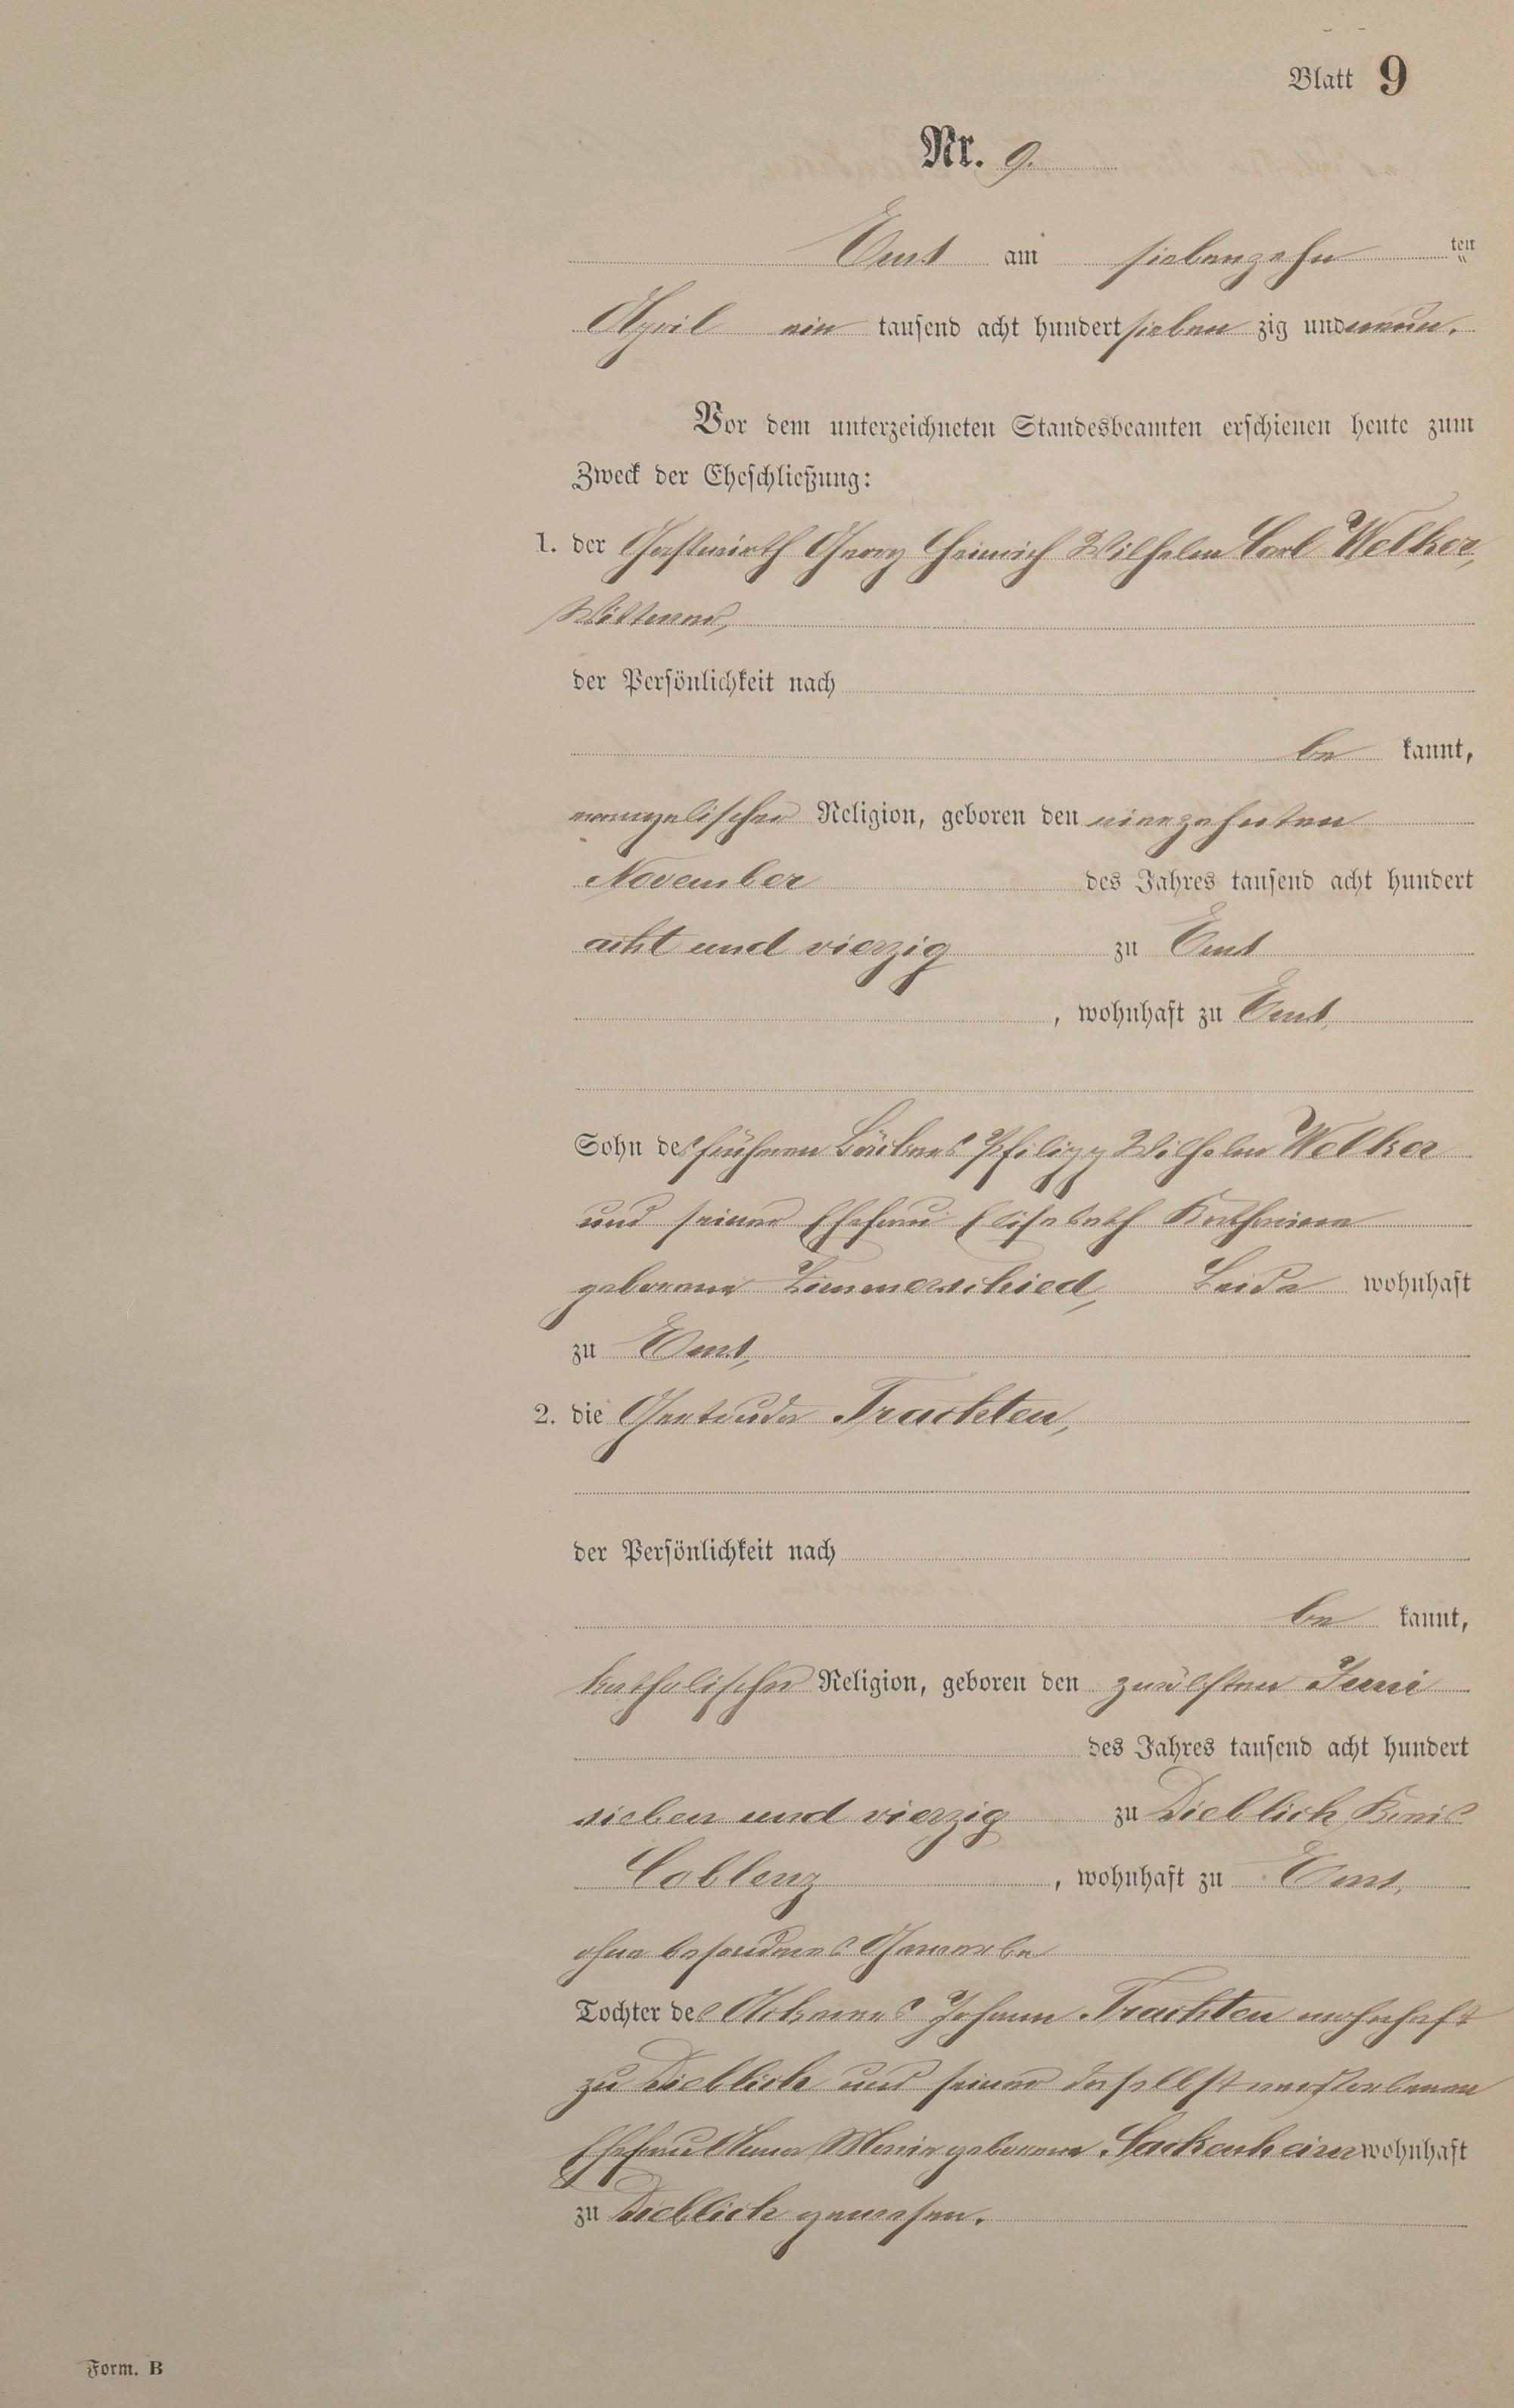 Blatt 9
Nr. 9.
Ems am siebenzehn ten
April ein tausend acht hundert sieben zig und neun.
Vor dem unterzeichneten Standesbeamten erschienen heute zum
Zweck der Eheschließung:
1. der Gastwirth Georg Heinrich Wilhelm Carl Welker,
Wittwer,
der Persönlichkeit nach
be kannt,
evangelischer Religion, geboren den vierzehnten
November des Jahres tausend acht hundert
acht und vierzig zu Ems
, wohnhaft zu Ems,
Sohn des früheren Bäckers Philipp Wilhelm Welker
und seiner Ehefrau Elisabeth Katharina
geborene Zimmerschied, Beide wohnhaft
zu Ems,
2. die Gertrude Trachten,
der Persönlichkeit nach
be kannt,
katholischer Religion, geboren den zwölften Juni
des Jahres tausend acht hundert
sieben und vierzig zu Dieblich Kreis
Coblenz , wohnhaft zu Ems,
ohne besonderes Gewerbe
Tochter des Ackerers Johann Trachten wohnhaft
zu Dieblich und seiner daselbst verstorbenen
Ehefrau Anna Maria geborene Sackenheim wohnhaft
zu Dieblich gewesen.
Form. B